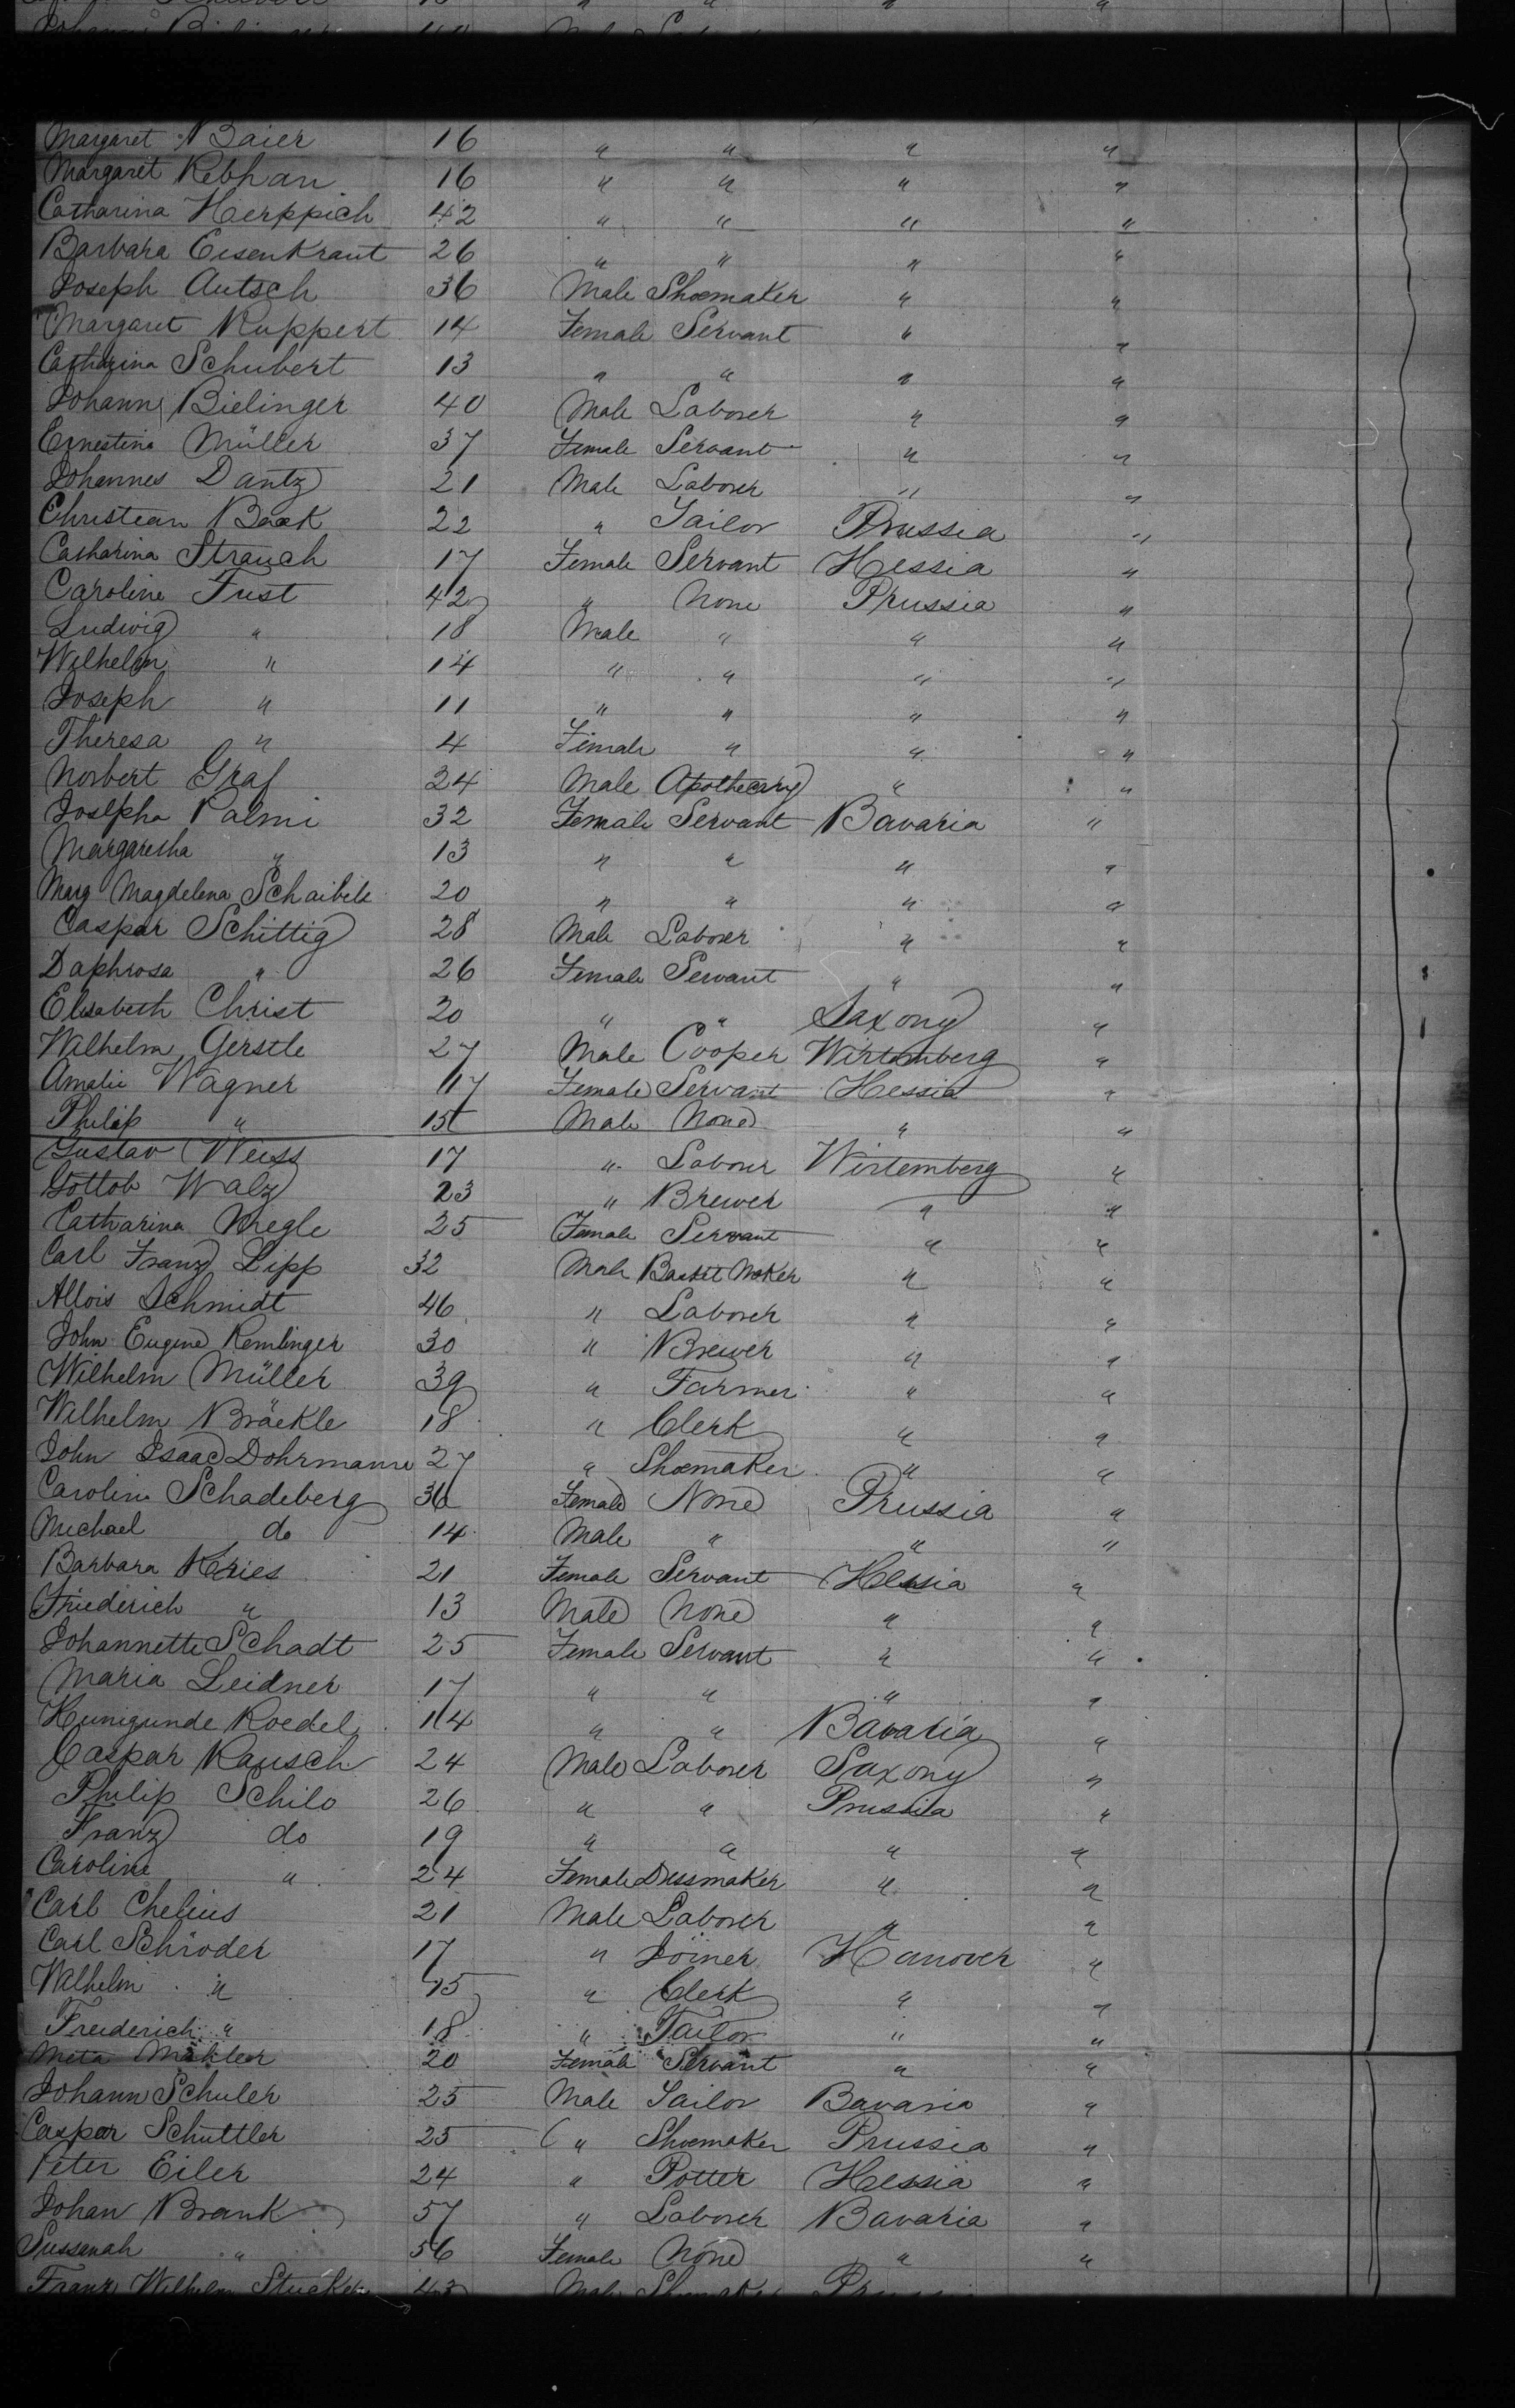 Margaret Baier 16 " " " "
Margaret Rebhan 16 " " " "
Catharina Herppich 42 " " " "
Barbara Eisenkraut 26 " " " "
Joseph Autsch 36 Male Shoemaker " "
Margaret Ruppert 14 Female Servant " "
Catharina Schubert 13 " " " "
Johann Bielinger 40 Male Laborer " "
Ernestina Müller 37 Female Servant " "
Johannes Dantz 21 Male Laborer " "
Christian Book 22 " Tailor Prussia "
Catharina Strauch 17 Female Servant Hessia "
Caroline Fust 42 " None Prussia "
Ludwig " 18 Male " " "
Wilhelm " 14 " " " "
Joseph " 11 " " " "
Theresa " 4 Female " " "
Norbert Graf 24 Male Apothecary " "
Josepha Palmi 32 Female Servant Bavaria "
Margaretha " 13 " " " "
Marg Magdelena Schaibele 20 " " " "
Caspar Schittig 28 Male Laborer " "
Daphrosa " 26 Female Servant " "
Elisabeth Christ 20 " " Saxony "
Wilhelm Gerstle 27 Male Cooper Wirtemberg "
Amalie Wagner 17 Female Servant Hessia "
Philip " 15 Male None " "
Gustav Weiss 17 " Laborer Wirtemberg "
Gottlob Walz 23 " Brewer " "
Catharina Negle 25 Female Servant " "
Carl Franz Lipp 32 Male Basket Maker " "
Allois Schmidt 46 " Laborer " "
John Eugene Remlinger 30 " Brewer " "
Wilhelm Müller 39 " Farmer " "
Wilhelm Bräckle 18 " Clerk " "
John Isaac Dohrmann 27 " Shoemaker " "
Caroline Schadeberg 36 Female None Prussia "
Michael do 14 Male " " "
Barbara Kries 21 Female Servant Hessia "
Friederich " 13 Male None " "
Johannette Schadt 25 Female Servant " "
Maria Leidner 17 " " " "
Kunigunde Roedel 14 " " Bavaria "
Caspar Rausch 24 Male Laborer Saxony "
Philip Schilo 26 " " Prussia "
Franz do 19 " " " "
Caroline " 24 Female Dressmaker " "
Carl Chelius 21 Male Laborer " "
Carl Schröder 17 " Joiner Hanover "
Wilhelm " 15 " Clerk " "
Freiderich " 18 " Tailor " "
Meta 20 Female Servant " "
Johann Schuler 25 Male Tailor Bavaria "
Caspar Schuttler 25 " Shoemaker Prussia "
Peter Eiler 24 " Potter Hessia "
Johan Brank 57 " Laborer Bavaria "
Sussanah " 56 Female None " "
Franz Wilhelm 43 Male Shoemaker